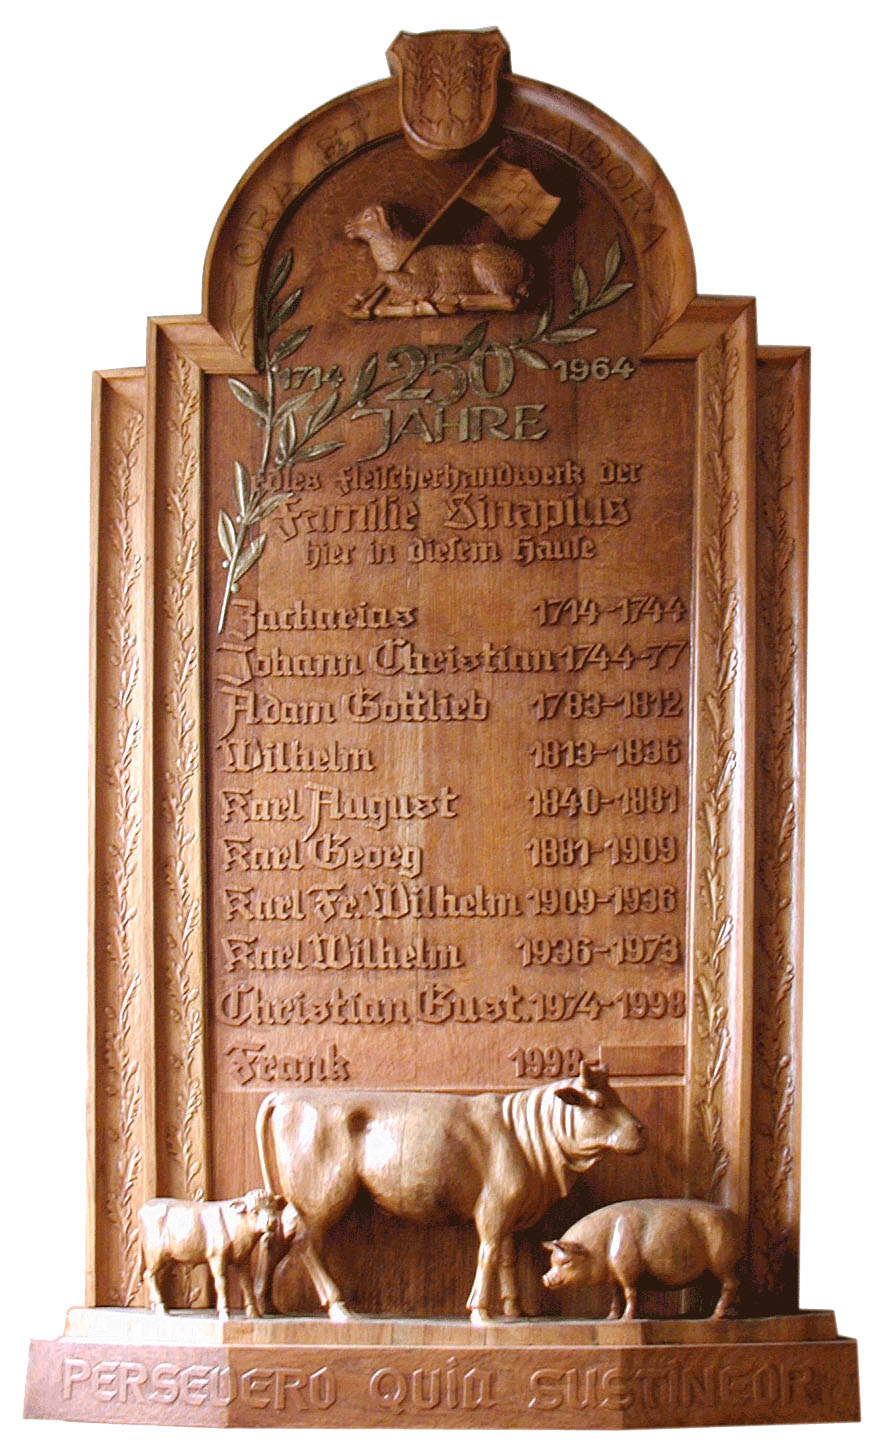 ORA ET LABORA
1714 250 1964
JAHRE
edles Fleischerhandwerk der
Familie Sinapius
hier in diesem Hause
Zacharias 1714-1744
Johann Christian 1744-77
Adam Gottlieb 1783-1812
Wilhelm 1813-1836
Karl August 1840-1881
Karl Georg 1881-1909
Karl Fr. Wilhelm 1909-1936
Karl Wilhelm 1936-1973
Christian Gust. 1974-1998
Frank 1998-
PERSEVERO QUIA SUSTINEOR